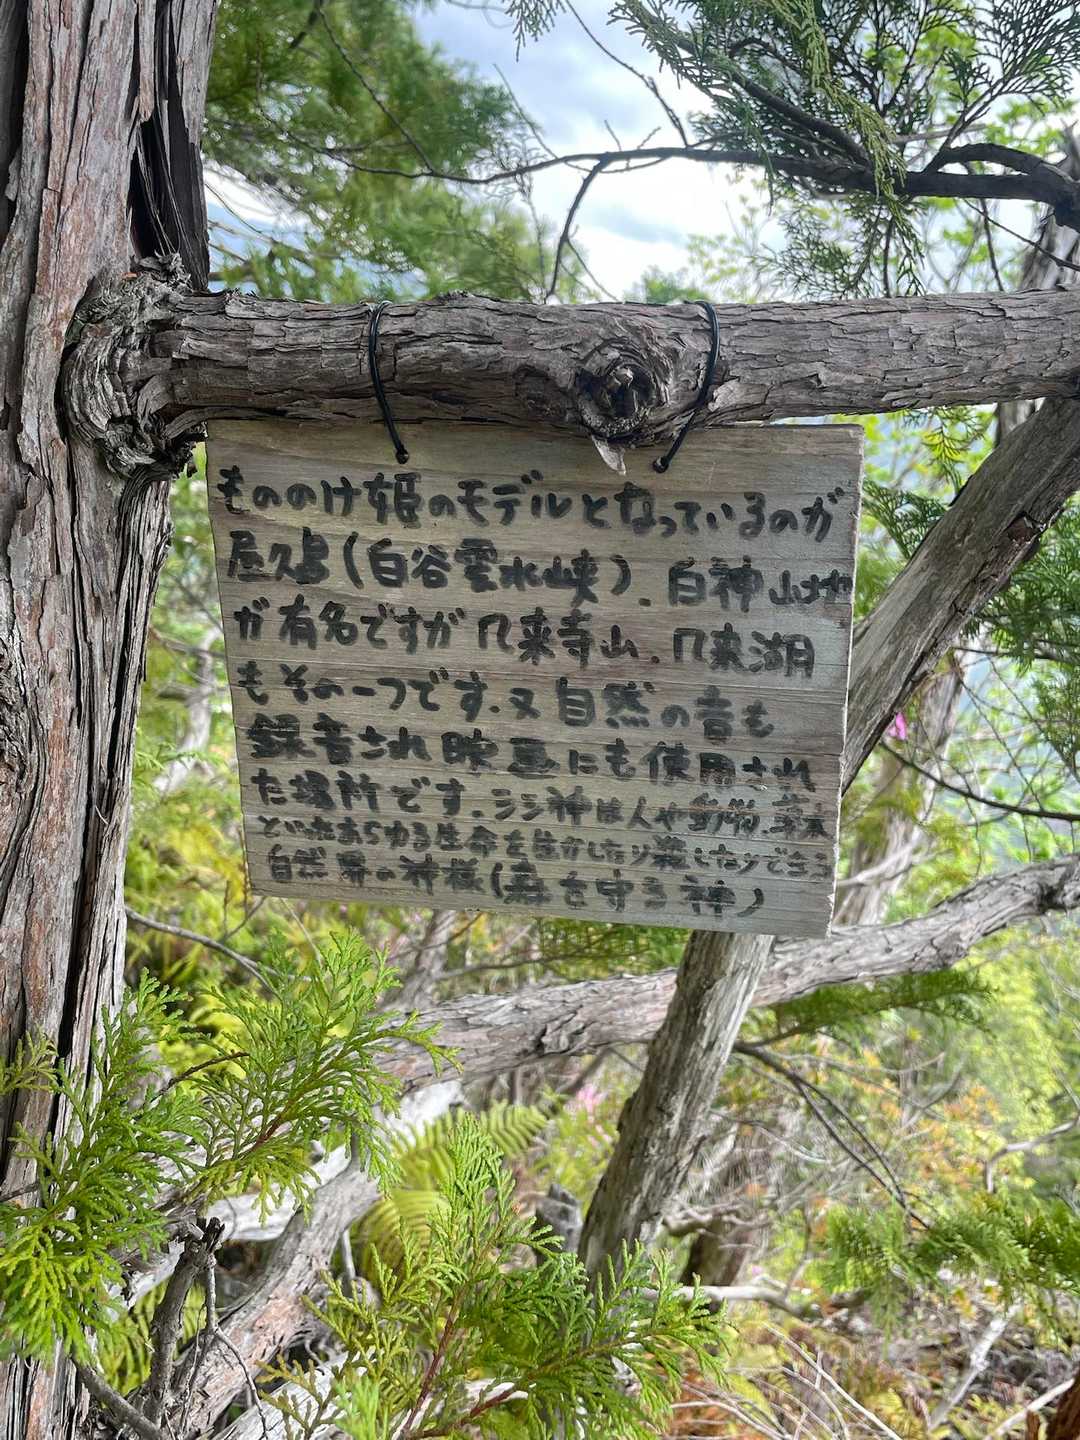 もののけ姫のモデルとなっているのが
屋久島(白谷雲水峡)．白神山地
が有名ですが几来寺山．几来湖
もその一つです．又自然の音も
録音され映画にも使用され
た場所です．シシ神は人や動物．草木
といったあらゆる生命を生かしたり殺したりできる
自然界の神様(森を守る神)